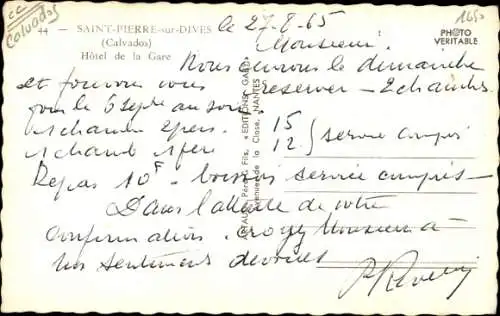 cc
Calvados
44 — SAINT-PIERRE-sur-DIVES
(Calvados)
Hôtel de la Gare
PHOTO
VERITABLE
1650
le 27-8-65
Monsieur.
Nous ouvrons le dimanche
et pouvons vous réserver — 2 chambres
pour le 6 Septe au soir
1 chamb 2 pers. 15
1 chamb 1 pers 12 } service compris
Repas 10F — boisson service compris —
Dans l'attente de votre
confirmation. croyez Monsieur à
nos sentiments dévoués
Père & Fils, «EDITIONS GABY»
avenue de la Close, NANTES